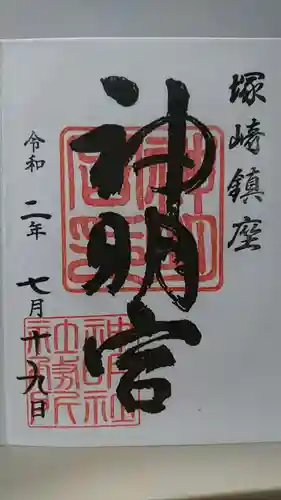 塚崎鎮座
神明宮
令和二年七月十九日